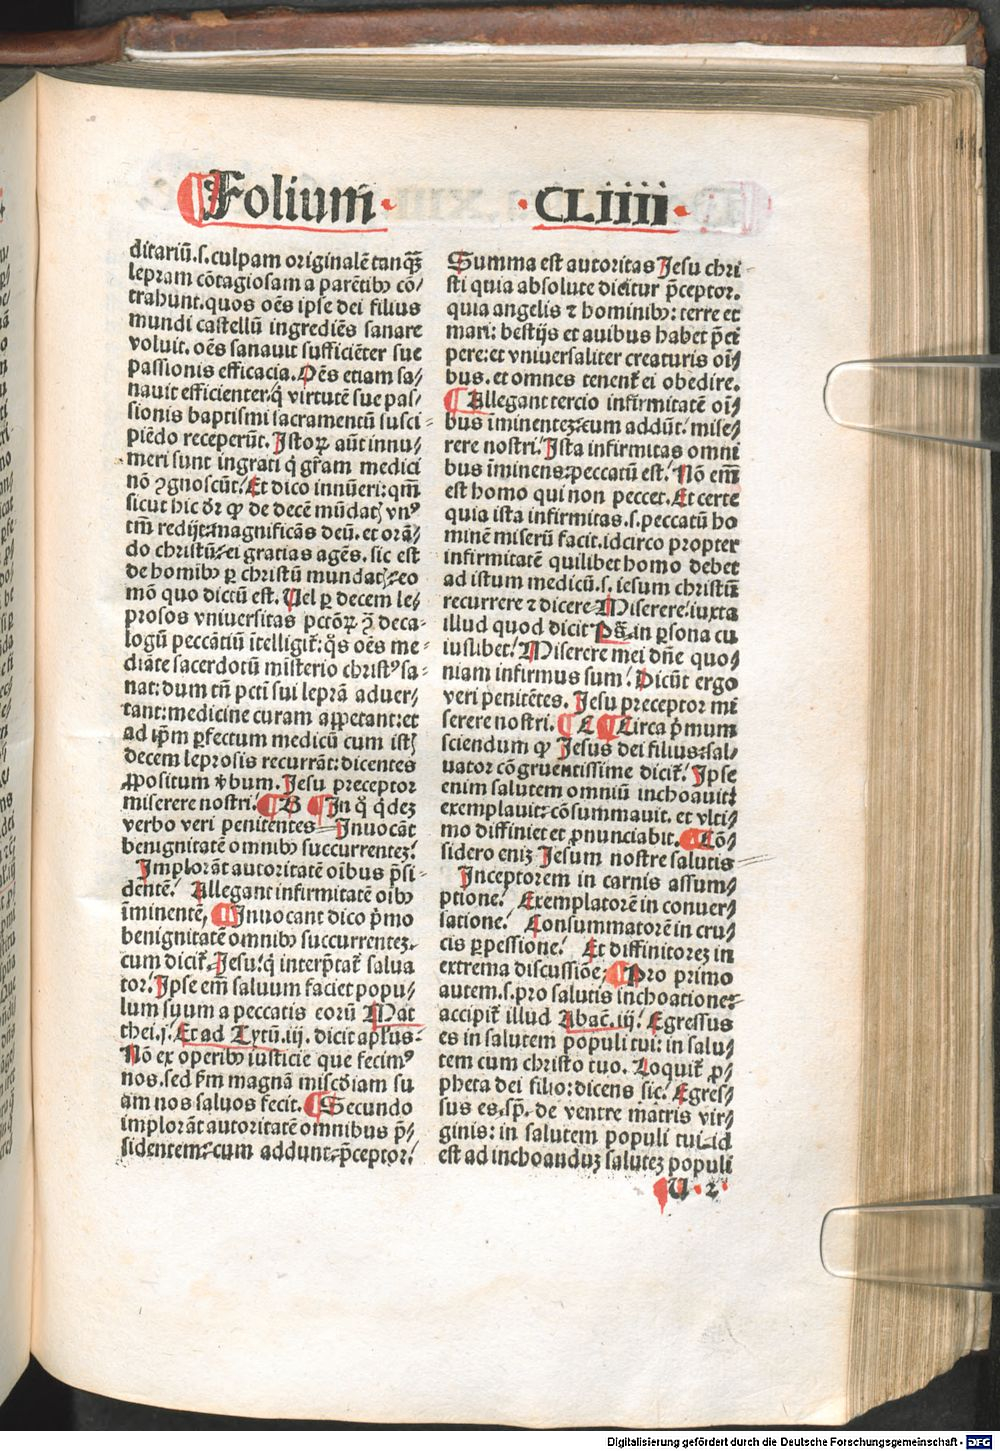 Folium · CLiiii ·
ditariū.s.culpam originalē tanꝙ̄
lepram cōtagiosam a parētibꝰ cō/
trahunt.quos oēs ipse dei filius
mundi castellū ingrediēs sanare
voluit.oēs sanauit sufficiēter sue
passionis efficacia.Oēs etiam sa/
nauit efficienter.q̇ virtutē sue pas/
sionis baptismi sacramentū susci⸗
piēdo receperūt.Istoꝝ aūt innu/
meri sunt ingrati q̇ gr̄am medici
nō ꝯgnoscūt.Et dico innūeri:qm̄
sicut hic dr̄ ꝙ de decē mūdatꝭ vnꝰ
tm̄ redijt:magnificās deū.et orā/
do christū:ei gratias agēs.sic est
de homibꝰ ꝑ christū mundatꝭ:eo
mō quo dictū est.Uel ꝑ decem le/
prosos vniuersitas pctōꝝ ꝫ deca⸗
logū peccātiū itelligit̄:q̇s oēs me⸗
diāte sacerdotū misterio christꝰ sa⸗
nat:dum tn̄ pcti sui leprā aduer/
tant:medicine curam appetant:et
ad ip̄m ꝑfectum medicū cum istꝭ
decem leprosis recurrāt:dicentes
ꝓpositum v̄bum.Iesu preceptor
miserere nostri. B In q̇ q̇dez
verbo veri penitentes Inuocāt
benignitatē omnibꝰ succurrentez:
Implorāt autoritatē oibus p̄si⸗
dentē: Allegant infirmitatē oibꝰ
īminentē, Inuocant dico p̄mo
benignitatē omnibꝰ succurrentez.
cum dicit̄.Iesu:q̇ interp̄tat̄ salua
tor.Ipse em̄ saluum faciet popu/
lum suum a peccatis eorū Mat
thei.j.Et ad Tytū.iij.dicit apl̄us⸗
Nō ex operibꝰ iusticie que fecimꝰ
nos.sed ẜm magnā misc̄diam su
am nos saluos fecit. Secundo
implorāt autoritatē omnibus p̄/
sidentem:cum addunt:p̄ceptor:
Summa est autoritas Iesu chri⸗
sti quia absolute dicitur p̄ceptor.
quia angelis ꝛ hominibꝰ:terre et
mari:bestijs et auibus habet p̄ci
pere:et vniuersaliter creaturis oī/
bus.et omnes tenent̄ ei obedire.
Allegant tercio infirmitatē oī/
bus īminentez:cum addūt:mise/
rere nostri.Ista infirmitas omni
bus īminens:peccatū est.Nō em̄
est homo qui non peccet.Et certe
quia ista infirmitas.s.peccatū ho
minē miserū facit.idcirco propter
infirmitatē quilibet homo debet
ad istum medicū.s.iesum christū
recurrere ꝛ dicere Miserere:iuxta
illud quod dicit Ps̄.in ꝑsona cu
iuslibet:Miserere mei dn̄e quo/
niam infirmus sum.Dicūt ergo
veri penitētes.Iesu preceptor mi
serere nostri. C Circa p̄mum
sciendum ꝙ Iesus dei filius:sal/
uator cōgruentissime dicit̄.Ipse
enim salutem omniū inchoauit:
exemplauit:cōsummauit.et vlti/
mo diffiniet et ꝓnunciabit. Cō/
sidero eniz Iesum nostre salutis
Inceptorem in carnis assum/
ptione: Exemplatorē in conuer/
satione: Consummatorē in cru/
cis ꝑpessione: Et diffinitorez in
extrema discussiōe: Pro primo
autem.s.pro salutis inchoatione:
accipit̄ illud Abac̄.iij.Egressus
es in salutem populi tui:in salu/
tem cum christo tuo.Loquit̄ ꝓ/
pheta dei filio:dicens sic.Egres/
sus es.sp̄.de ventre matris vir/
ginis:in salutem populi tui.id
est ad inchoanduz salutez populi
U 2
Digitalisierung gefördert durch die Deutsche Forschungsgemeinschaft - DFG